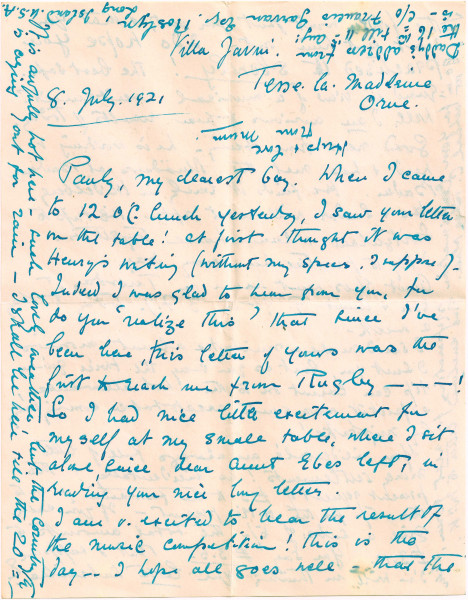 Villa Jarni.
Tesse. la. Madeleine
Orne.
8. July. 1921
Pauly, my dearest boy. When I came
to 12 o'c. lunch yesterday, I saw your letter
on the table! at first thought it was
Henry's writing (without my specs. I suppose)-
Indeed I was glad to hear from you, for
do you "realize this" that since I've
been here, this letter of yours was the
first to reach me from Rugby - - - !
So I had nice little excitement for
myself at my small table, where I sit
alone since dear aunt Ebes left, in
reading your nice long letter.
I am v. excited to hear the result of
the music competition! this is the
day-- I hope all goes well - that the
Daddy's address from
the 16 till 11 Aug:
is - c/o Francis Garvan Esq. Roslyn,
Long Island U.S.A.
from Mum
It is awfully hot here - such lovely weather but the country
is crying out for rain - I shall be here till the 20th =